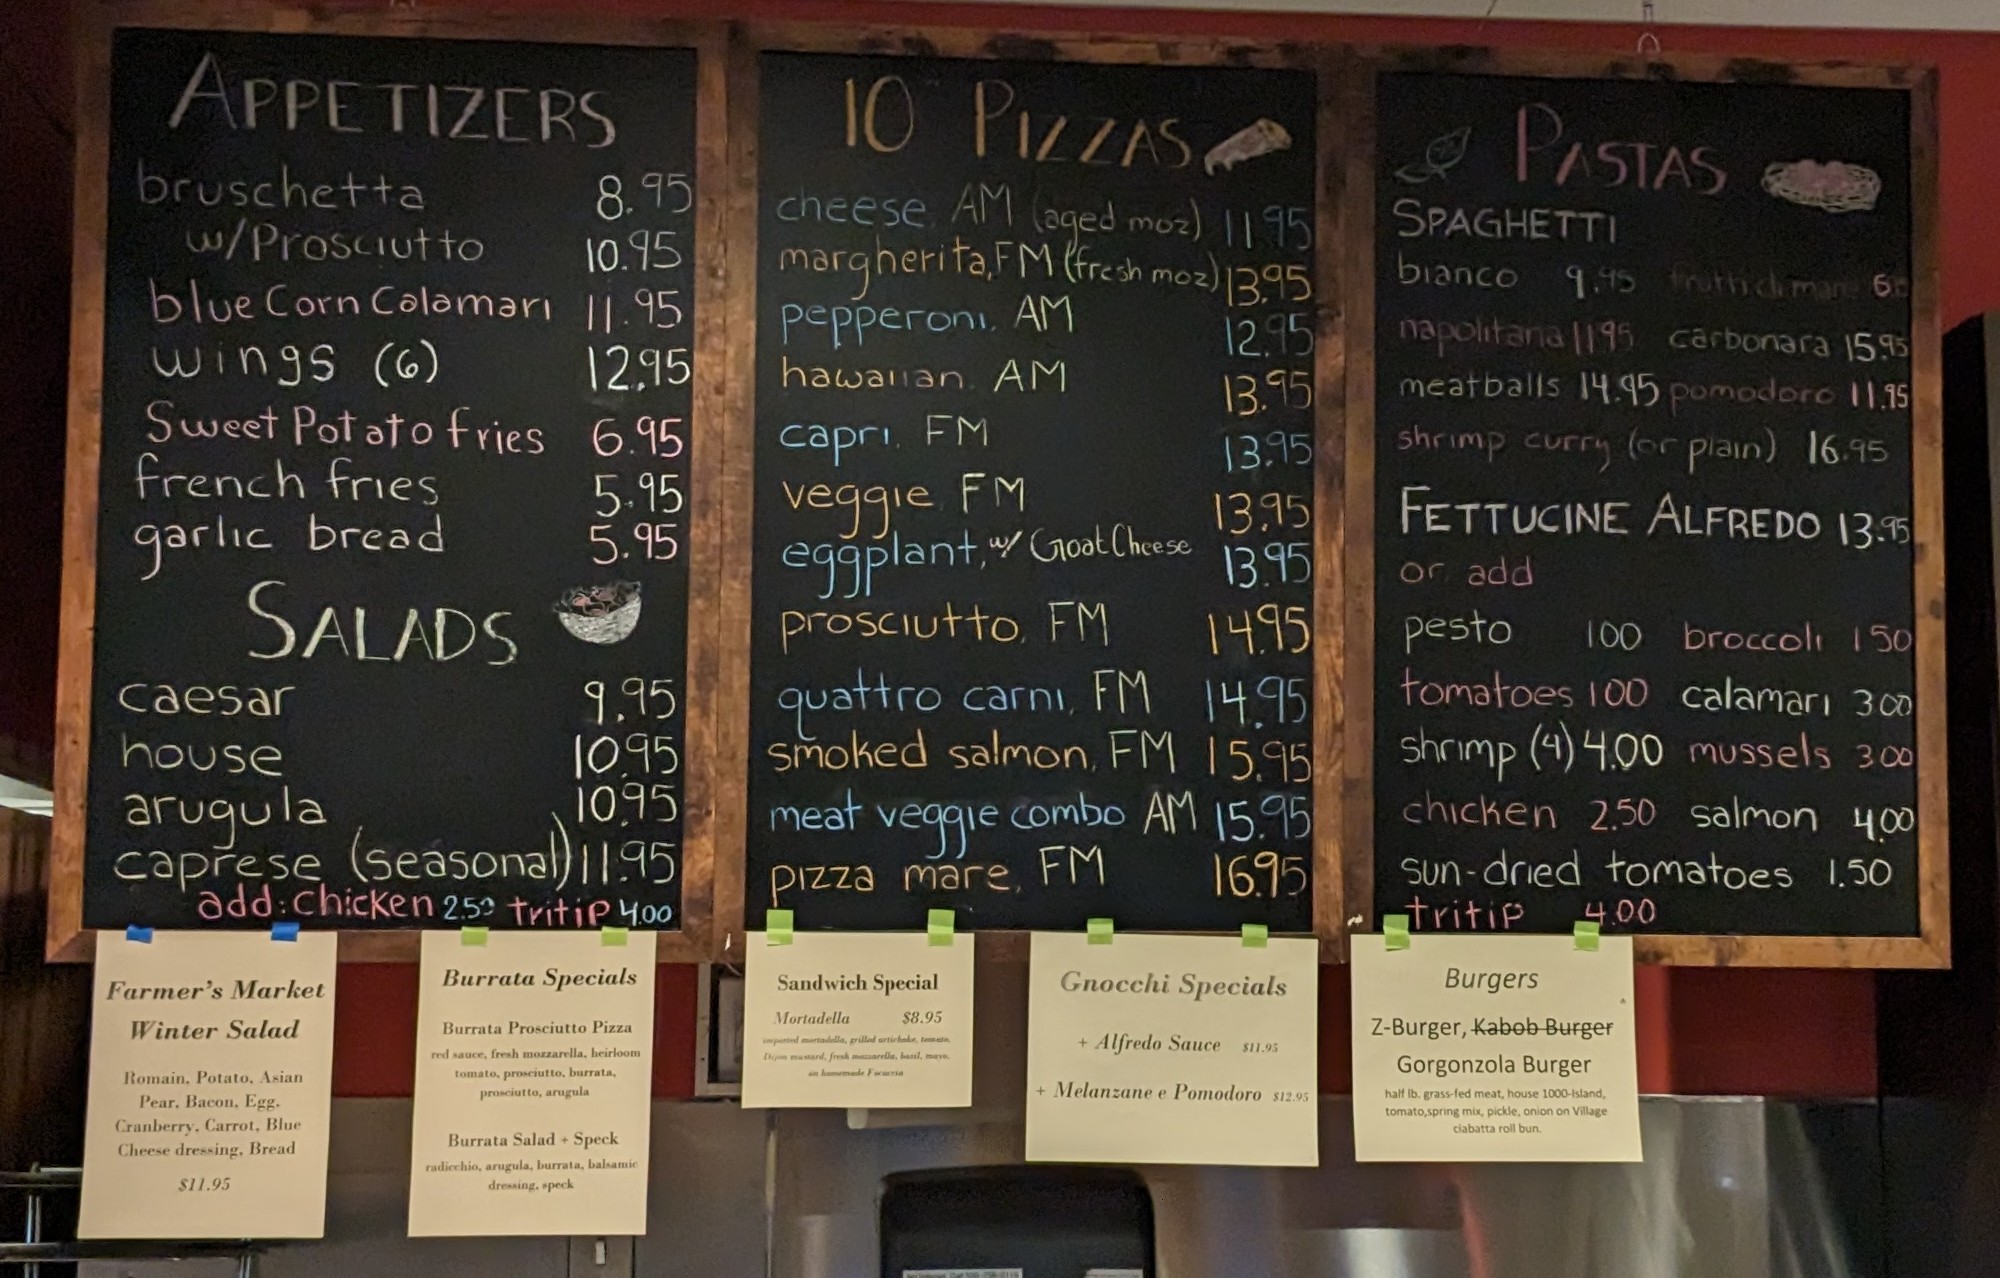 APPETIZERS
bruschetta 8.95
w/Prosciutto 10.95
blue Corn Calamari 11.95
wings (6) 12.95
Sweet Potato fries 6.95
french fries 5.95
garlic bread 5.95
SALADS
caesar 9.95
house 10.95
arugula 10.95
caprese (seasonal) 11.95
add: chicken 2.50 tritip 4.00
10" PIZZAS
cheese, AM (aged moz) 11.95
margherita, FM (fresh moz) 13.95
pepperoni, AM 12.95
hawaiian, AM 13.95
capri, FM 13.95
veggie, FM 13.95
eggplant, w/ Goat Cheese 13.95
prosciutto, FM 14.95
quattro carni, FM 14.95
smoked salmon, FM 15.95
meat veggie combo AM 15.95
pizza mare, FM 16.95
PASTAS
SPAGHETTI
bianco 9.95 frutti di mare
napolitana 11.95 carbonara 15.95
meatballs 14.95 pomodoro 11.95
shrimp curry (or plain) 16.95
FETTUCINE ALFREDO 13.95
or add
pesto 100 broccoli 150
tomatoes 100 calamari 300
shrimp (4) 4.00 mussels 300
chicken 2.50 salmon 4.00
sun-dried tomatoes 1.50
tritip 4.00
Farmer's Market
Winter Salad
Romain, Potato, Asian
Pear, Bacon, Egg,
Cranberry, Carrot, Blue
Cheese dressing, Bread
$11.95
Burrata Specials
Burrata Prosciutto Pizza
red sauce, fresh mozzarella, heirloom
tomato, prosciutto, burrata,
prosciutto, arugula
Burrata Salad + Speck
radicchio, arugula, burrata, balsamic
dressing, speck
Sandwich Special
Mortadella $8.95
imported mortadella, grilled artichoke, tomato,
Dijon mustard, fresh mozzarella, basil, mayo,
on homemade Focaccia
Gnocchi Specials
+ Alfredo Sauce $11.95
+ Melanzane e Pomodoro $12.95
Burgers
Z-Burger, Kabob Burger
Gorgonzola Burger
half lb. grass-fed meat, house 1000-Island,
tomato,spring mix, pickle, onion on Village
ciabatta roll bun.